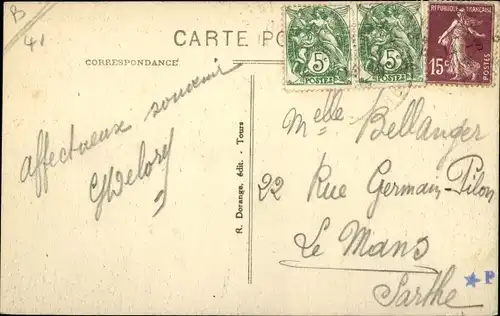 B
41
CARTE PO
CORRESPONDANCE
5c
POSTES
5c
POSTES
REPUBLIQUE FRANÇAISE
15c
POSTES
Affectueux souvenir
R. Dorange, édit. - Tours
Melle Bellanger
22 Rue Germain-Pilon
Le Mans
Sarthe
P